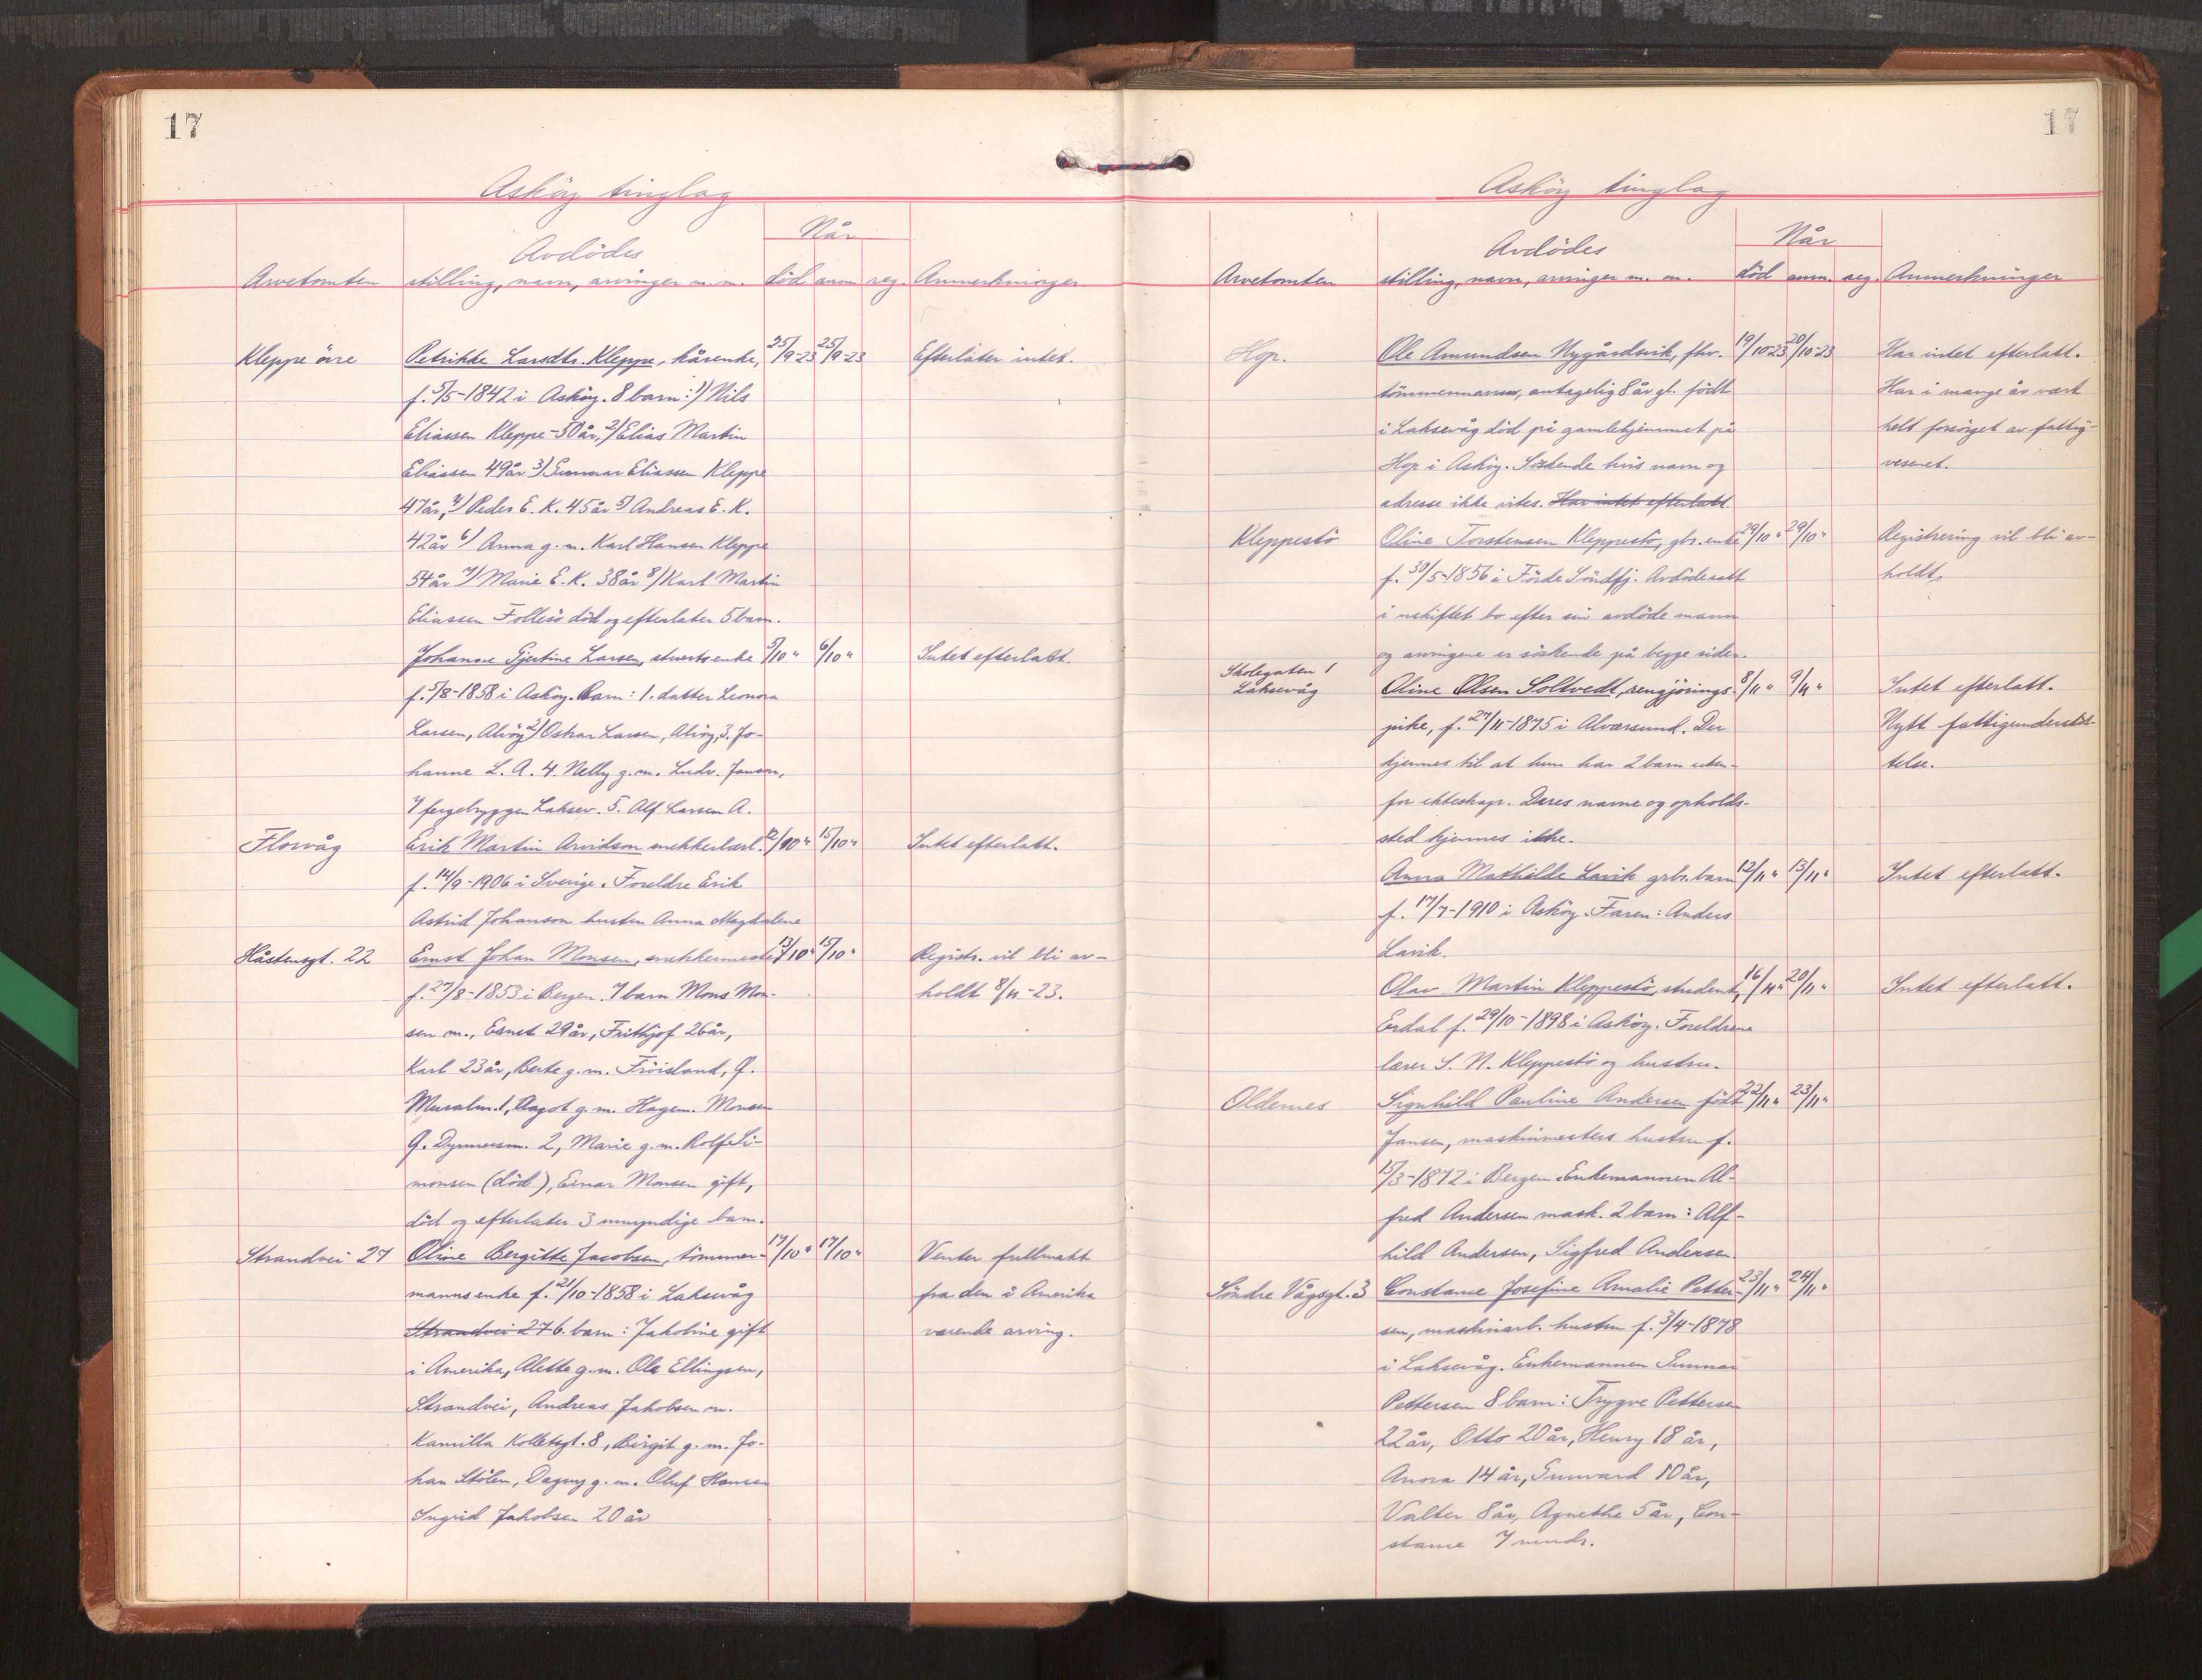 17
Asköy tinglag
Når
Avdödes
Arvetomten stilling, navn, arvinger m.m. död anm reg. Anmerkninger
Kleppe övre Petrikke Larsdtr. Kleppe, kårenke, 25/9-23 25/9-23 Efterlater intet.
f. 5/5-1842 i Asköy. 8 barn: 1) Nils
Eliassen Kleppe - 50 år, 2) Elias Martin
Eliassen 49 år 3) Gunnar Eliassen Kleppe
47 år, 4) Peder E. K. 45 år 5) Andreas E. K.
42 år 6) Anna g. m. Karl Hansen Kleppe
54 år 7) Marie E. K. 38 år 8) Karl Martin
Eliassen Follesö död og efterlater 5 barn.
Johanne Gjertine Larsen, stuertsenke 5/10 " 6/10 " Intet efterlatt.
f. 5/8-1858 i Asköy. Barn: 1. datter Leonora
Larsen, Alvöy 2) Oskar Larsen, Alvöy, 3. Jo-
hanne L. A. 4. Nelly g. m. Ludv. Jansen,
7 fergebryggen Laksev. 5. Alf Larsen A.
Florvåg Erik Martin Arvidson snekkerlærl. 12/10 " 15/10 " Intet efterlatt.
f. 14/9-1906 i Sverige. Foreldre Erik
Astrid Johanson hustru Anna Magdalene
Håstensgt. 22 Ernst Johan Monsen, snekkermester 13/10 " 15/10 " Registr. vil bli av-
f. 27/8-1853 i Bergen. 7 barn Mons Mon- holdt 8/11-23.
sen m., Ernst 29 år, Frithjof 26 år,
Karl 23 år, Berte g. m. Fröisland, Q.
Muralm. 1, Aagot g. m. Hagem. Monsen
Q. Dynnersm. 2, Marie g. m. Rolf Si-
monsen (död), Einar Monsen gift,
död og efterlater 3 umyndige barn.
Strandvei 27 Oline Bergitte Jacobsen, tömmer- 17/10 " 17/10 " Venter fullmakt
manns enke f. 21/10-1858 i Laksevåg fra den i Amerika
Strandvei 27 6. barn: Jakobine gift værende arving.
i Amerika, Alette g. m. Ole Ellingsen,
Strandvei, Andreas Jakobsen m.
Kamilla Kolletsgt. 8, Birgit g. m. Jo-
han Stölen, Dagny g. m. Oluf Hansen
Ingrid Jakobsen 20 år
17
Asköy tinglag
Når
Avdödes
Arvetomten stilling, navn, arvinger m. m. död anm. reg. Anmerkninger
Hop. Ole Amundsen Nygårdsvik, fhv. 19/10-23 20/10-23 Har intet efterlatt.
tömmermann, antagelig 8 år gl. födt Har i mange år vært
i Laksevåg död på gamlehjemmet på helt forsörget av fattig-
Hop i Asköy. Söskende hvis navn og vesenet.
adresse ikke vites. Har intet efterlatt.
Kleppestö Oline Torstensen Kleppestö, gbr. enke 29/10 " 29/10 " Registrering vil bli av-
f. 30/5-1856 i Förde Söndfj. Avdöde satt holdt.
i uskiftet bo efter sin avdöde mann
og arvingene er söskende på begge sider.
Skolegaten 1
Laksevåg Oline Olsen Soltvedt, rengjörings- 8/11 " 9/11 " Intet efterlatt.
pike, f. 27/11-1875 i Alversund. Der Nytt fattigunderstöt-
kjennes til at hun har 2 barn uten- telse.
for ekteskap. Deres navne og opholds-
sted kjennes ikke.
Anna Mathilde Lavik grbr. barn 12/11 " 13/11 " Intet efterlatt.
f. 17/7-1910 i Asköy. Faren: Anders
Lavik.
Olav Martin Kleppestö, student, 16/11 " 20/11 " Intet efterlatt.
Erdal f. 29/10-1898 i Asköy. Foreldrene
lærer S. N. Kleppestö og hustru.
Oldernes Signhild Pauline Andersen födt 22/11 " 23/11 "
Jansen, maskinmesters hustru f.
15/3-1872 i Bergen. Enkemannen Al-
fred Andersen mask. 2 barn: Alf-
hild Andersen, Sigfred Andersen.
Söndre Vågsgt. 3 Constance Josefine Amalie Petter- 23/11 " 24/11 "
sen, maskinarb. hustru f. 3/4-1878
i Laksevåg. Enkemannen Gunnar
Pettersen 8 barn: Trygve Pettersen
22 år, Otto 20 år, Henry 18 år,
Anora 14 år, Gunvard 10 år,
Valter 8 år, Agnethe 5 år, Con-
stance 7 mndr.